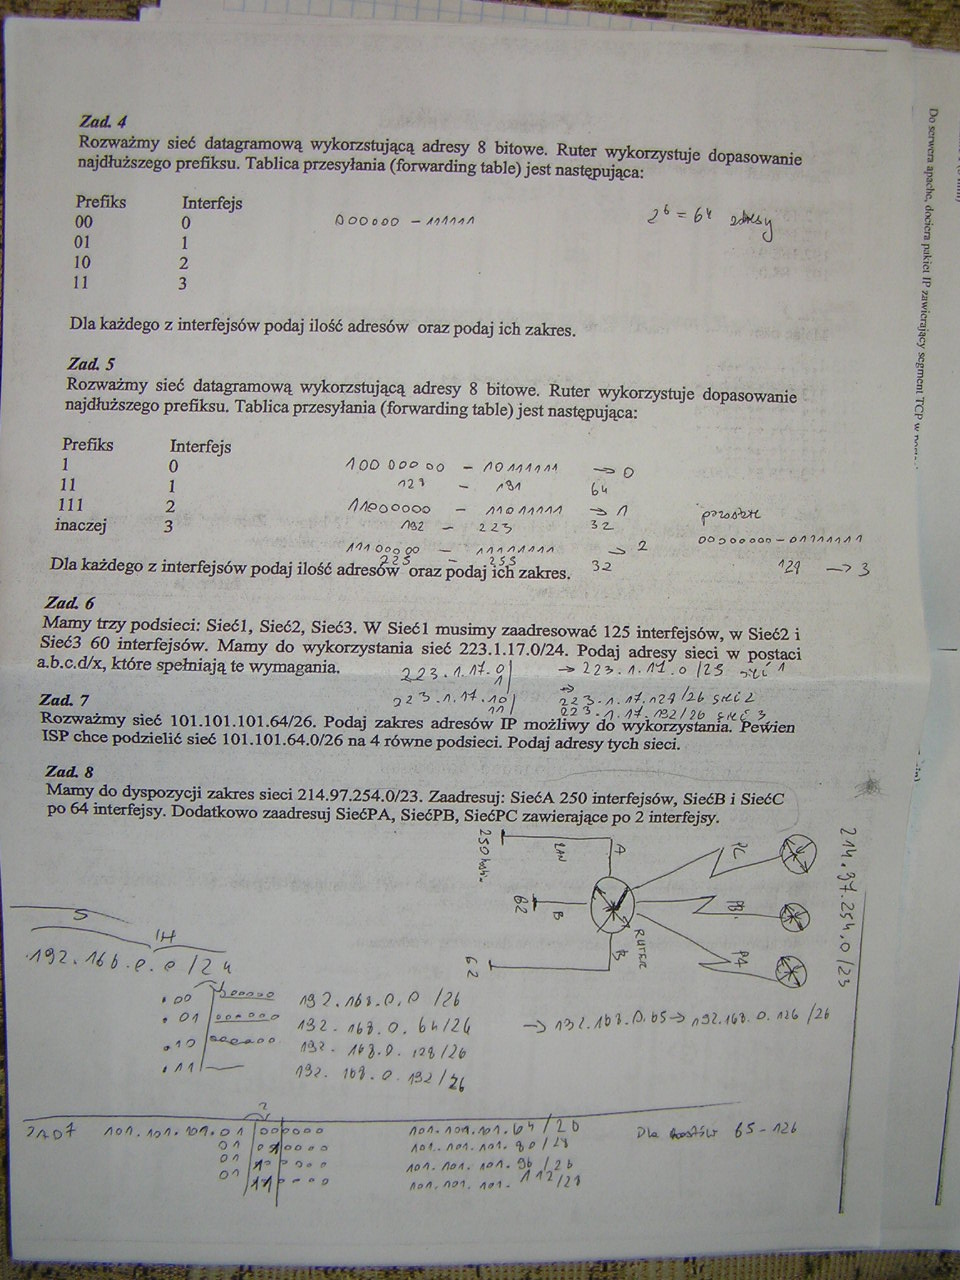 Zad. 4
Rozważmy sieć datagramową wykorzstującą adresy 8 bitowe. Ruter wykorzystuje dopasowanie
najdłuższego prefiksu. Tablica przesyłania (forwarding table) jest następująca:
Prefiks Interfejs
00 0 000000 - 111111 2^6 = 64 adresy
01 1
10 2
11 3
Dla każdego z interfejsów podaj ilość adresów oraz podaj ich zakres.
Zad. 5
Rozważmy sieć datagramową wykorzstującą adresy 8 bitowe. Ruter wykorzystuje dopasowanie
najdłuższego prefiksu. Tablica przesyłania (forwarding table) jest następująca:
Prefiks Interfejs
1 0 10000000 - 10111111 → 0
11 1 128 - 191 64
111 2 11000000 - 11011111 → 1 pozostałe
inaczej 3 192 - 223 32 00000000 - 01111111
11100000 - 11111111 → 2
225 - 255 32 → 3
Dla każdego z interfejsów podaj ilość adresów oraz podaj ich zakres.
Zad. 6
Mamy trzy podsieci: Sieć1, Sieć2, Sieć3. W Sieć1 musimy zaadresować 125 interfejsów, w Sieć2 i
Sieć3 60 interfejsów. Mamy do wykorzystania sieć 223.1.17.0/24. Podaj adresy sieci w postaci
a.b.c.d/x, które spełniają te wymagania. 223.1.17.0| → 223.1.17.0 /25 sieć 1
1|
223.1.17.10| → 223.1.17.129/26 sieć 2
11| 223.1.17.192/26 sieć 3
Zad. 7
Rozważmy sieć 101.101.101.64/26. Podaj zakres adresów IP możliwy do wykorzystania. Pewien
ISP chce podzielić sieć 101.101.64.0/26 na 4 równe podsieci. Podaj adresy tych sieci.
Zad. 8
Mamy do dyspozycji zakres sieci 214.97.254.0/23. Zaadresuj: SiećA 250 interfejsów, SiećB i SiećC
po 64 interfejsy. Dodatkowo zaadresuj SiećPA, SiećPB, SiećPC zawierające po 2 interfejsy.
214.97.254.0 /23
250
LAN
A
PC
62
B
PB
RUTER
62
B
PA
S
1H
192.168.0.0 /24
.00 00000 192.168.0.0 /26
.01 000000 192.168.0.64/26 → 192.168.0.65 → 192.168.0.126 /26
.10 000000 192.168.0.128 /26
.11 192.168.0.192 /26
2
ZAD7 101.101.101.01|00|0000 101.101.101.64/28 Dla hostów 65-126
01 01 0000 101.101.101.80/28
01 10 0000 101.101.101.96/28
01 11 0000 101.101.101.112/28
Do serwera apache, dociera pakiet IP zawierający segment TCP w